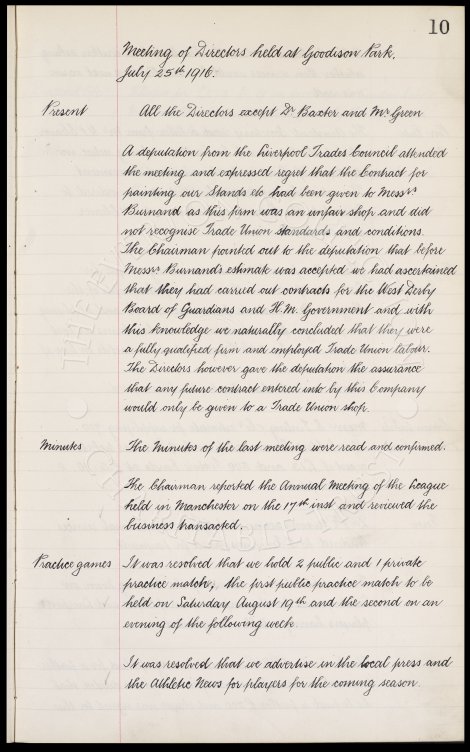 10
Meeting of Directors held at Goodison Park,
July 25th 1916.
Present All the Directors except Dr Baxter and Mr Green
A deputation from the Liverpool Trades Council attended
the meeting and expressed regret that the Contract for
painting our Stands etc had been given to Messrs
Burnand as this firm was an unfair shop and did
not recognise Trade Union standards and conditions.
The Chairman pointed out to the deputation that before
Messrs Burnand's estimate was accepted we had ascertained
that they had carried out contracts for the West Derby
Board of Guardians and H.M. Government and with
this knowledge we naturally concluded that they were
a fully qualified firm and employed Trade Union labour.
The Directors however gave the deputation the assurance
that any future contract entered into by this Company
would only be given to a Trade Union shop.
Minutes The Minutes of the last meeting were read and confirmed.
The Chairman reported the Annual Meeting of the League
held in Manchester on the 17th inst and reviewed the
business transacted.
Practice games It was resolved that we hold 2 public and 1 private
practice match, the first public practice match to be
held on Saturday August 19th and the second on an
evening of the following week
It was resolved that we advertise in the local press and
the Athletic News for players for the coming season.